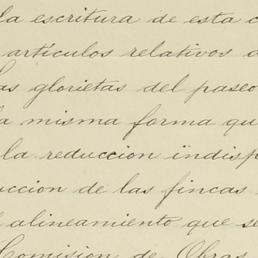 la escritura de esta c
articulos relativos a
Las glorietas del paseo
la misma forma que
la reduccion indisp
uccion de las fincas
l alineamiento que se
Comision de Obras